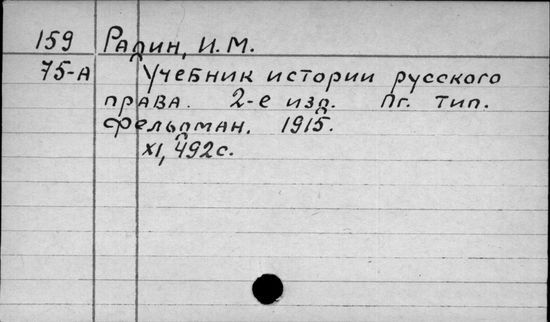 159 Радин, И.М.
75-А Учебник истории русского
права. 2-е изд. Пг. тип.
Фельдман. 1915.
XI, 492с.